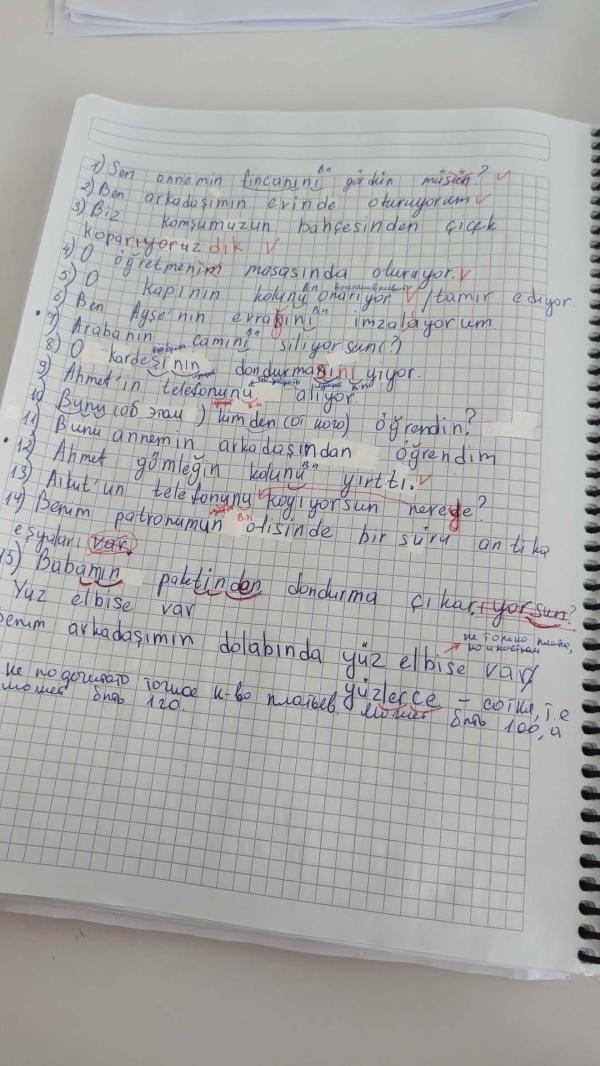 1) Sen annemin fincanını Вп gördün müsün? ✓
2) Ben arkadaşımın evinde oturuyorum ✓
3) Biz komşumuzun bahçesinden çiçek
koparıyoruz dik ✓
4) O öğretmenim masasında oturuyor. ✓
5) O kapının kolunu Вп onarıyor ✓ /tamir ediyor.
6) Ben Ayşe'nin evrağını Вп imzalıyorum
7) Arabanın camını Вп siliyorsun(?)
8) O kardeşinin dondurmasını yiyor.
9) Ahmet'in telefonunu alıyor.
10) Bunu (об этом) kimden (от кого) öğrendin?
11) Bunu annemin arkadaşından öğrendim
12) Ahmet gömleğin kolunu Вп yırttı. ✓
13) Aikut'un telefonunu koyıyorsun nereye?
14) Benim patronumun ofisinde bir sürü antika
eşyaları var
15) Babamın paktinden dondurma çıkarıyorsun?
Yüz elbise var
не только платье,
Benim arkadaşımın dolabında yüz elbise var
yüzlerce – сотни, т.е
не подсчитано точное к-во платьев. Может быть 100, а
может быть 120.